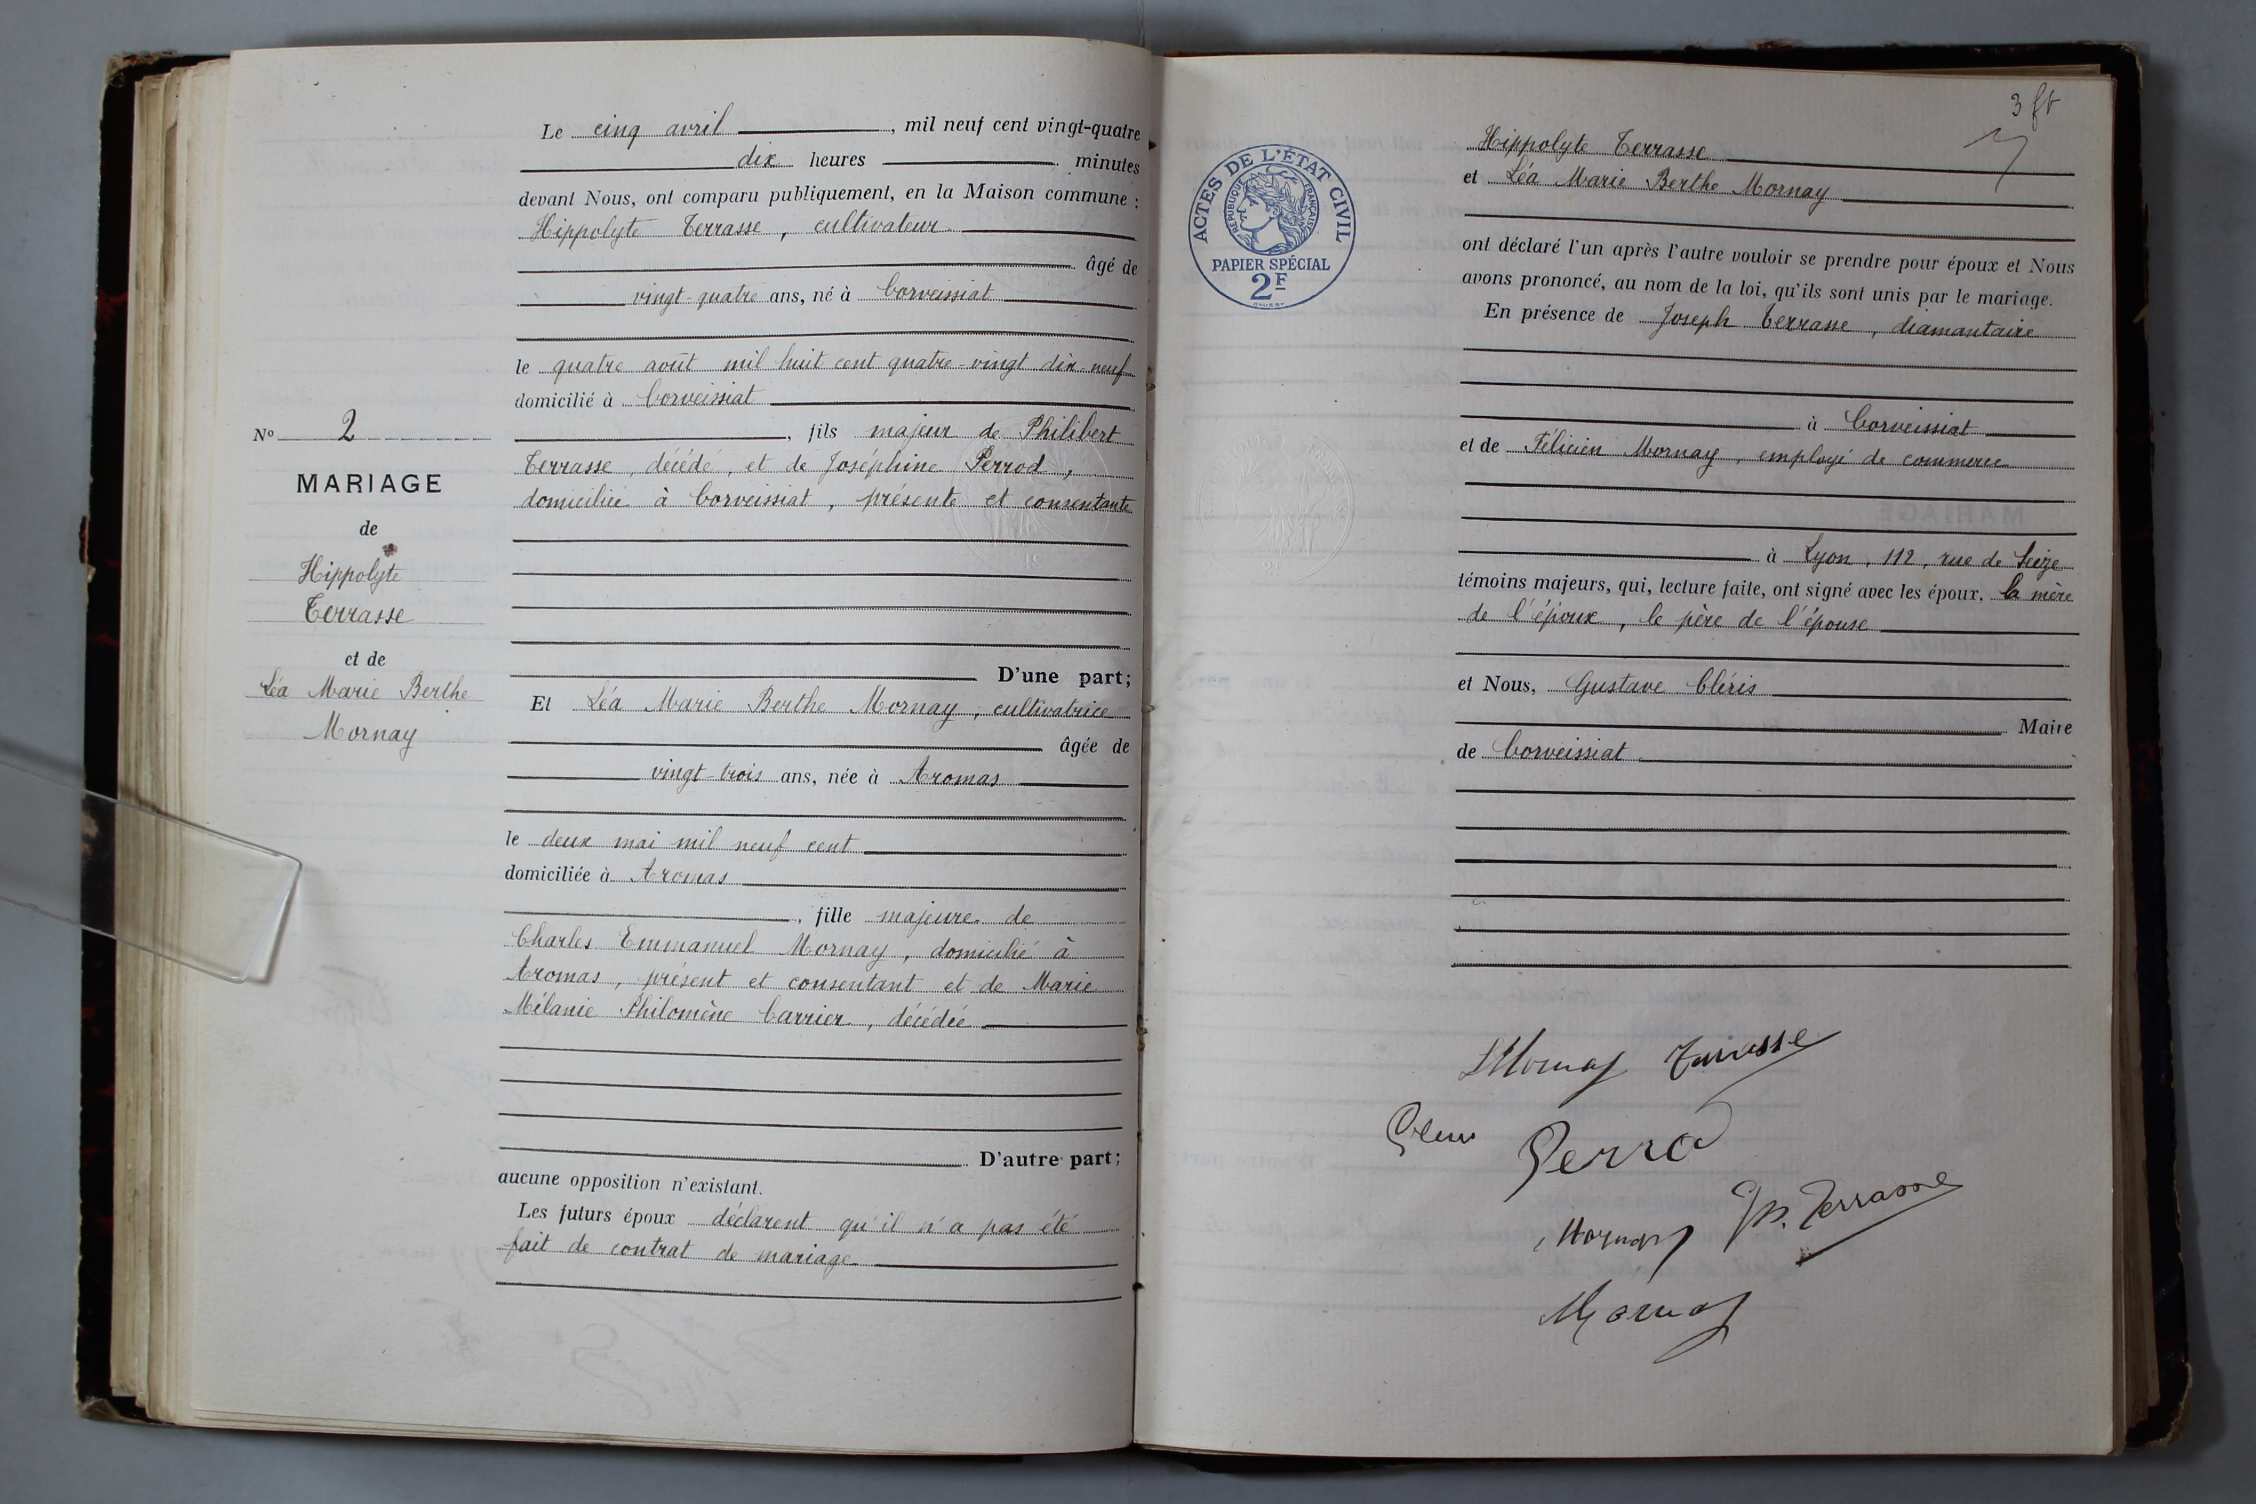 Le cinq avril, mil neuf cent vingt-quatre
dix heures minutes
devant Nous, ont comparu publiquement, en la Maison commune :
Hippolyte Terrasse, cultivateur
âgé de
vingt-quatre ans, né à Corveissiat
le quatre août mil huit cent quatre-vingt dix-neuf
domicilié à Corveissiat
, fils majeur de Philibert
Terrasse, décédé, et de Joséphine Perrod,
domiciliée à Corveissiat, présente et consentante
D'une part;
Nº 2
MARIAGE
de
Hippolyte
Terrasse
et de
Léa Marie Berthe
Mornay
Et Léa Marie Berthe Mornay, cultivatrice
âgée de
vingt-trois ans, née à Aromas
le deux mai mil neuf cent
domiciliée à Aromas
, fille majeure de
Charles Emmanuel Mornay, domicilié à
Aromas, présent et consentant et de Marie
Mélanie Philomène Carrier, décédée
D'autre part;
aucune opposition n'existant.
Les futurs époux déclarent qu'il n'a pas été
fait de contrat de mariage
ACTES DE L'ÉTAT CIVIL
RÉPUBLIQUE FRANÇAISE
PAPIER SPÉCIAL
2F
Hippolyte Terrasse
et Léa Marie Berthe Mornay
ont déclaré l'un après l'autre vouloir se prendre pour époux et Nous
avons prononcé, au nom de la loi, qu'ils sont unis par le mariage.
En présence de Joseph Terrasse, diamantaire
à Corveissiat
et de Félicien Mornay, employé de commerce
à Lyon, 112, rue de Sèze
témoins majeurs, qui, lecture faite, ont signé avec les époux, la mère
de l'époux, le père de l'épouse
et Nous, Gustave Cléris
Maire
de Corveissiat
LMornay Terrasse
Perrod
Mornay Jh. Terrasse
Mornay